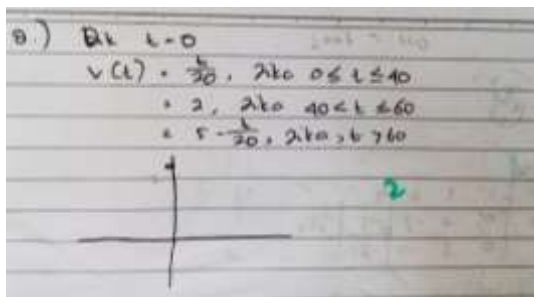 8.) Dik t = 0
v(t) = t/20, jika 0 ≤ t ≤ 40
= 2, jika 40 < t ≤ 60
= 5 - t/20, jika, t > 60
2